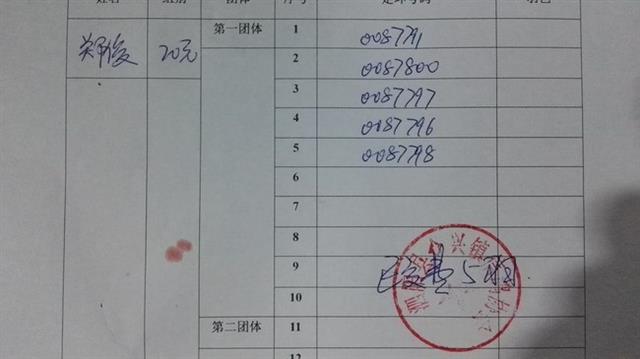 姓名 组别 团体 序号 足环号码 羽色
郑俊 20元 第一团体 1 0087791
2 0087800
3 0087797
4 0087796
5 0087798
6
7
8
9 已交费5羽
10
第二团体 11
12
兴镇